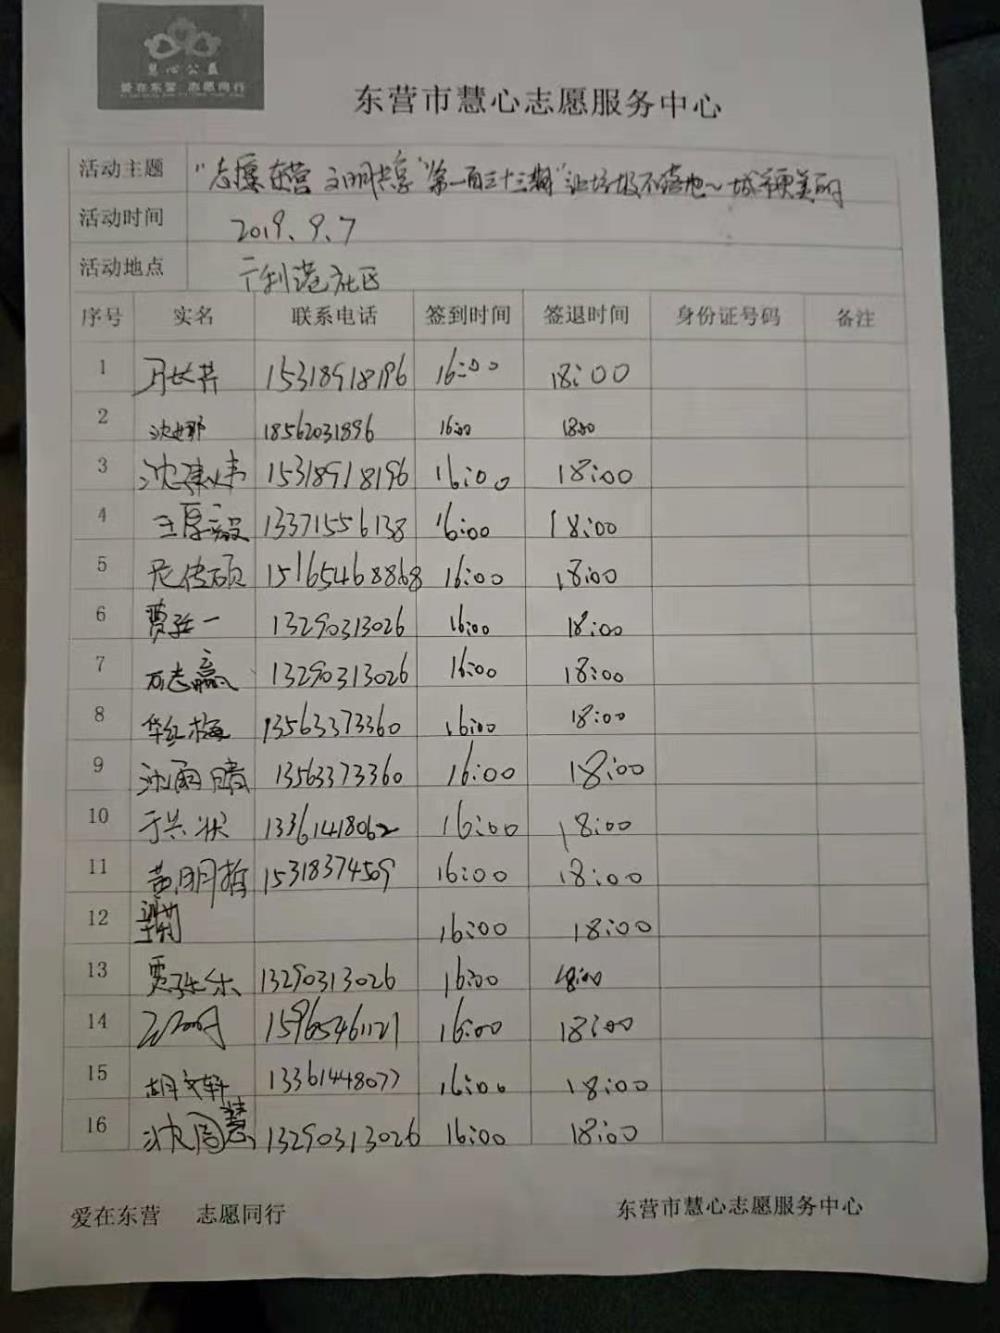 慧心公益
爱在东营 志愿同行
东营市慧心志愿服务中心
活动主题 "志愿东营 文明共享"第一百三十三期"让垃圾不落地~城市更美的
活动时间 2019.9.7
活动地点 利港社区
序号 实名 联系电话 签到时间 签退时间 身份证号码 备注
1 15318918196 16:00 18:00
2 沈娜 18562031896 16:00 18:00
3 沈建炜 15318918196 16:00 18:00
4 王厚毅 13371556138 16:00 18:00
5 尼传硕 15165468868 16:00 18:00
6 贾弦一 13290313026 16:00 18:00
7 万志赢 13290313026 16:00 18:00
8 华红梅 13563373360 16:00 18:00
9 沈雨晴 13563373360 16:00 18:00
10 于兴状 13361418062 16:00 18:00
11 黄明哲 15318374509 16:00 18:00
12 16:00 18:00
13 贾弦乐 13290313026 16:00 18:00
14 15965461121 16:00 18:00
15 胡文轩 13361448077 16:00 18:00
16 沈周慧 13290313026 16:00 18:00
爱在东营 志愿同行 东营市慧心志愿服务中心